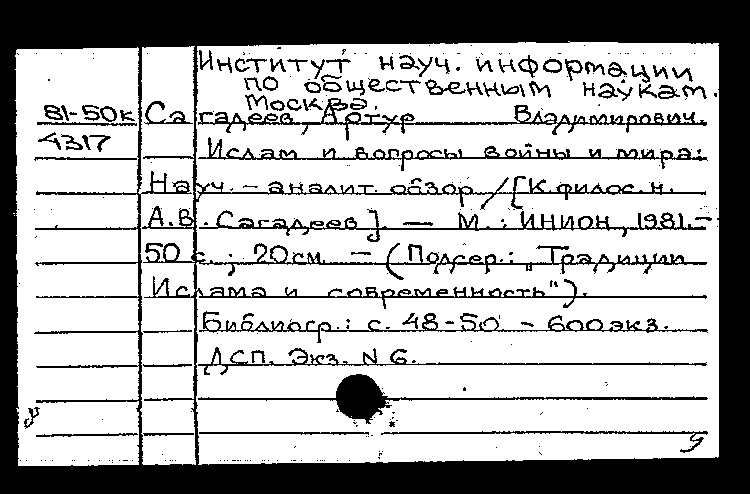 Институт науч. информации
по общественным наукам.
Москва.
81-50к Сагадеев, Артур Владимирович.
4317
Ислам и вопросы войны и мира:
Науч. - аналит обзор / [К.филос.н.
А.В. Сагадеев]. — М.: ИНИОН, 1981. -
50 с.; 20см. — (Подсер.: „Традиции
Ислама и современность").
Библиогр.: с. 48-50 - 600экз.
ДСП. Экз. N 6.